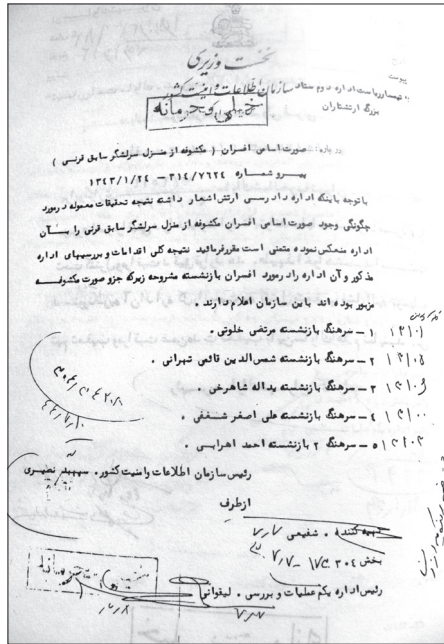 نخست وزیری
سازمان اطلاعات و امنیت کشور
پیوست
به تیمسار ریاست اداره دوم ستاد
بزرگ ارتشتاران
خیلی محرمانه
درباره : صورت اسامی افسران ( مکشوفه از منزل سرلشگر سابق قرنی )
پیرو شماره ۳۱٤/۷۲۲٤ – ۱۳٤۳/۱/۲٤
با توجه باینکه اداره دادرسی ارتش اشعار داشته نتیجه تحقیقات معموله در مورد
چگونگی وجود صورت اسامی افسران مکشوفه از منزل سرلشگر سابق قرنی را بــآن
اداره منعکس نموده متمنی است مقرر فرمائید نتیجه کلی اقدامات و بررسیهای اداره
مذکور و آن اداره را در مورد افسران بازنشسته مشروحه زیر که جزو صورت مکشوفــه
مزبور بوده اند باین سازمان اعلام دارند .
۱ – سرهنگ بازنشسته مرتضی خلوتی .
۲ – سرهنگ بازنشسته شمس الدین قائمی تهرانی .
۳ – سرهنگ بازنشسته یداله شاهرخی .
٤ – سرهنگ بازنشسته علی اصغر شــغفی .
٥ – سرهنگ ۲ بازنشسته احمد اهرابــی .
رئیس سازمان اطلاعات و امنیت کشور . سپهبد نصیــری
از طرف
تهیه کننده . شفیعی ۷/۷
بخش ۳۰٤
رئیس اداره یکم عملیات و بررسی . لیقوانی